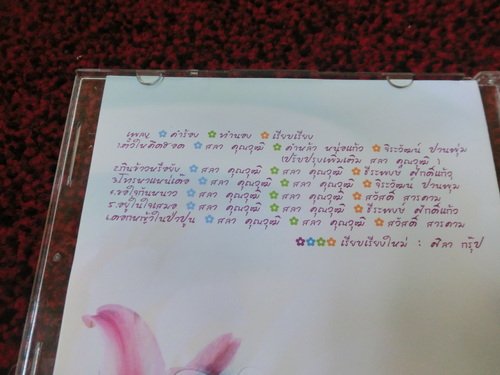 เพลง คำร้อง ทำนอง เรียบเรียง
1.ตั๋วให้คึดฮอด สลา คุณวุฒิ คำหล้า หน่อแก้ว จิระวัฒน์ ปานพุ่ม
ปรับปรุงเพิ่มเติม สลา คุณวุฒิ
2.กินข้าวหรือยัง สลา คุณวุฒิ สลา คุณวุฒิ ธีระพงษ์ ศักดิ์แก้ว
3.โทรหาแหน่เด้อ สลา คุณวุฒิ สลา คุณวุฒิ จิระวัฒน์ ปานพุ่ม
4.ขอใจกันหนาว สลา คุณวุฒิ สลา คุณวุฒิ สวัสดิ์ สารคาม
5.อยู่ในใจเสมอ สลา คุณวุฒิ สลา คุณวุฒิ ธีระพงษ์ ศักดิ์แก้ว
6.ดอกหญ้าในป่าปูน สลา คุณวุฒิ สลา คุณวุฒิ สวัสดิ์ สารคาม
เรียบเรียงใหม่ : ศิลา กรุ๊ป